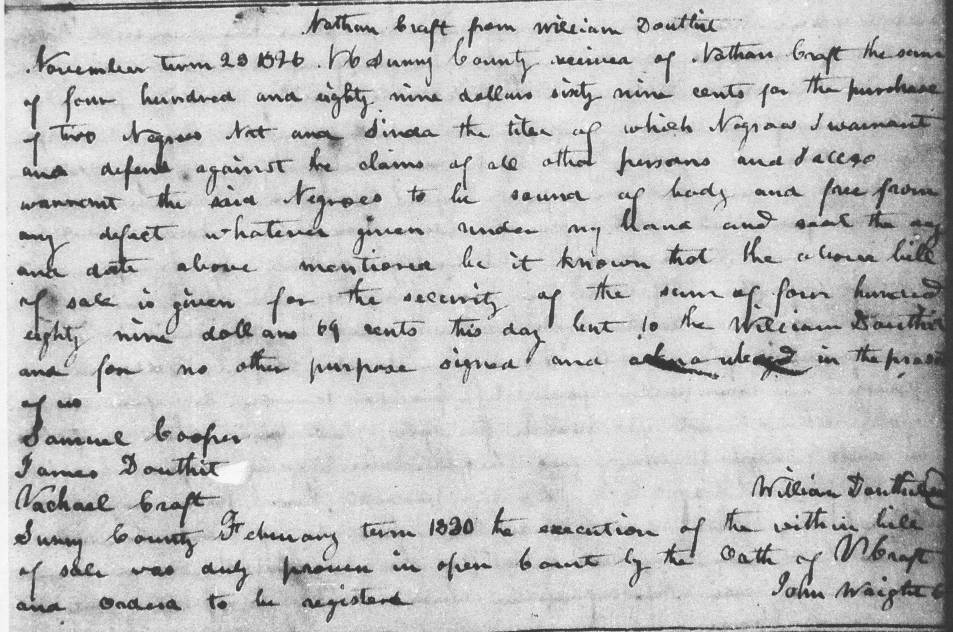 Nathan Craft from William Douthit
November term 23 1826 NC Surry County received of Nathan Craft the sum
of four hundred and eighty nine dollars sixty nine cents for the purchase
of two Negroes Nat and Sinda the titea of which Negroes I warrant
and defend against the claims of all other persons and I allso
warrent the said Negroes to be sound of body and free from
any defect whatever given under my hand and seal the
and date above mentioned be it known that the above bill
of sale is given for the security of the sum of four hundred
eighty nine dollars 69 cents this day lent to the William Douthit
and for no other purpose signed and in the
of us
Samuel Cooper
James Douthit
Vachael Craft
William Douthit
Surry County February term 1830 the execution of the within bill
of sale was duly proven in open Court by the Oath of V Craft
and Orderd to be registerd
John Wright